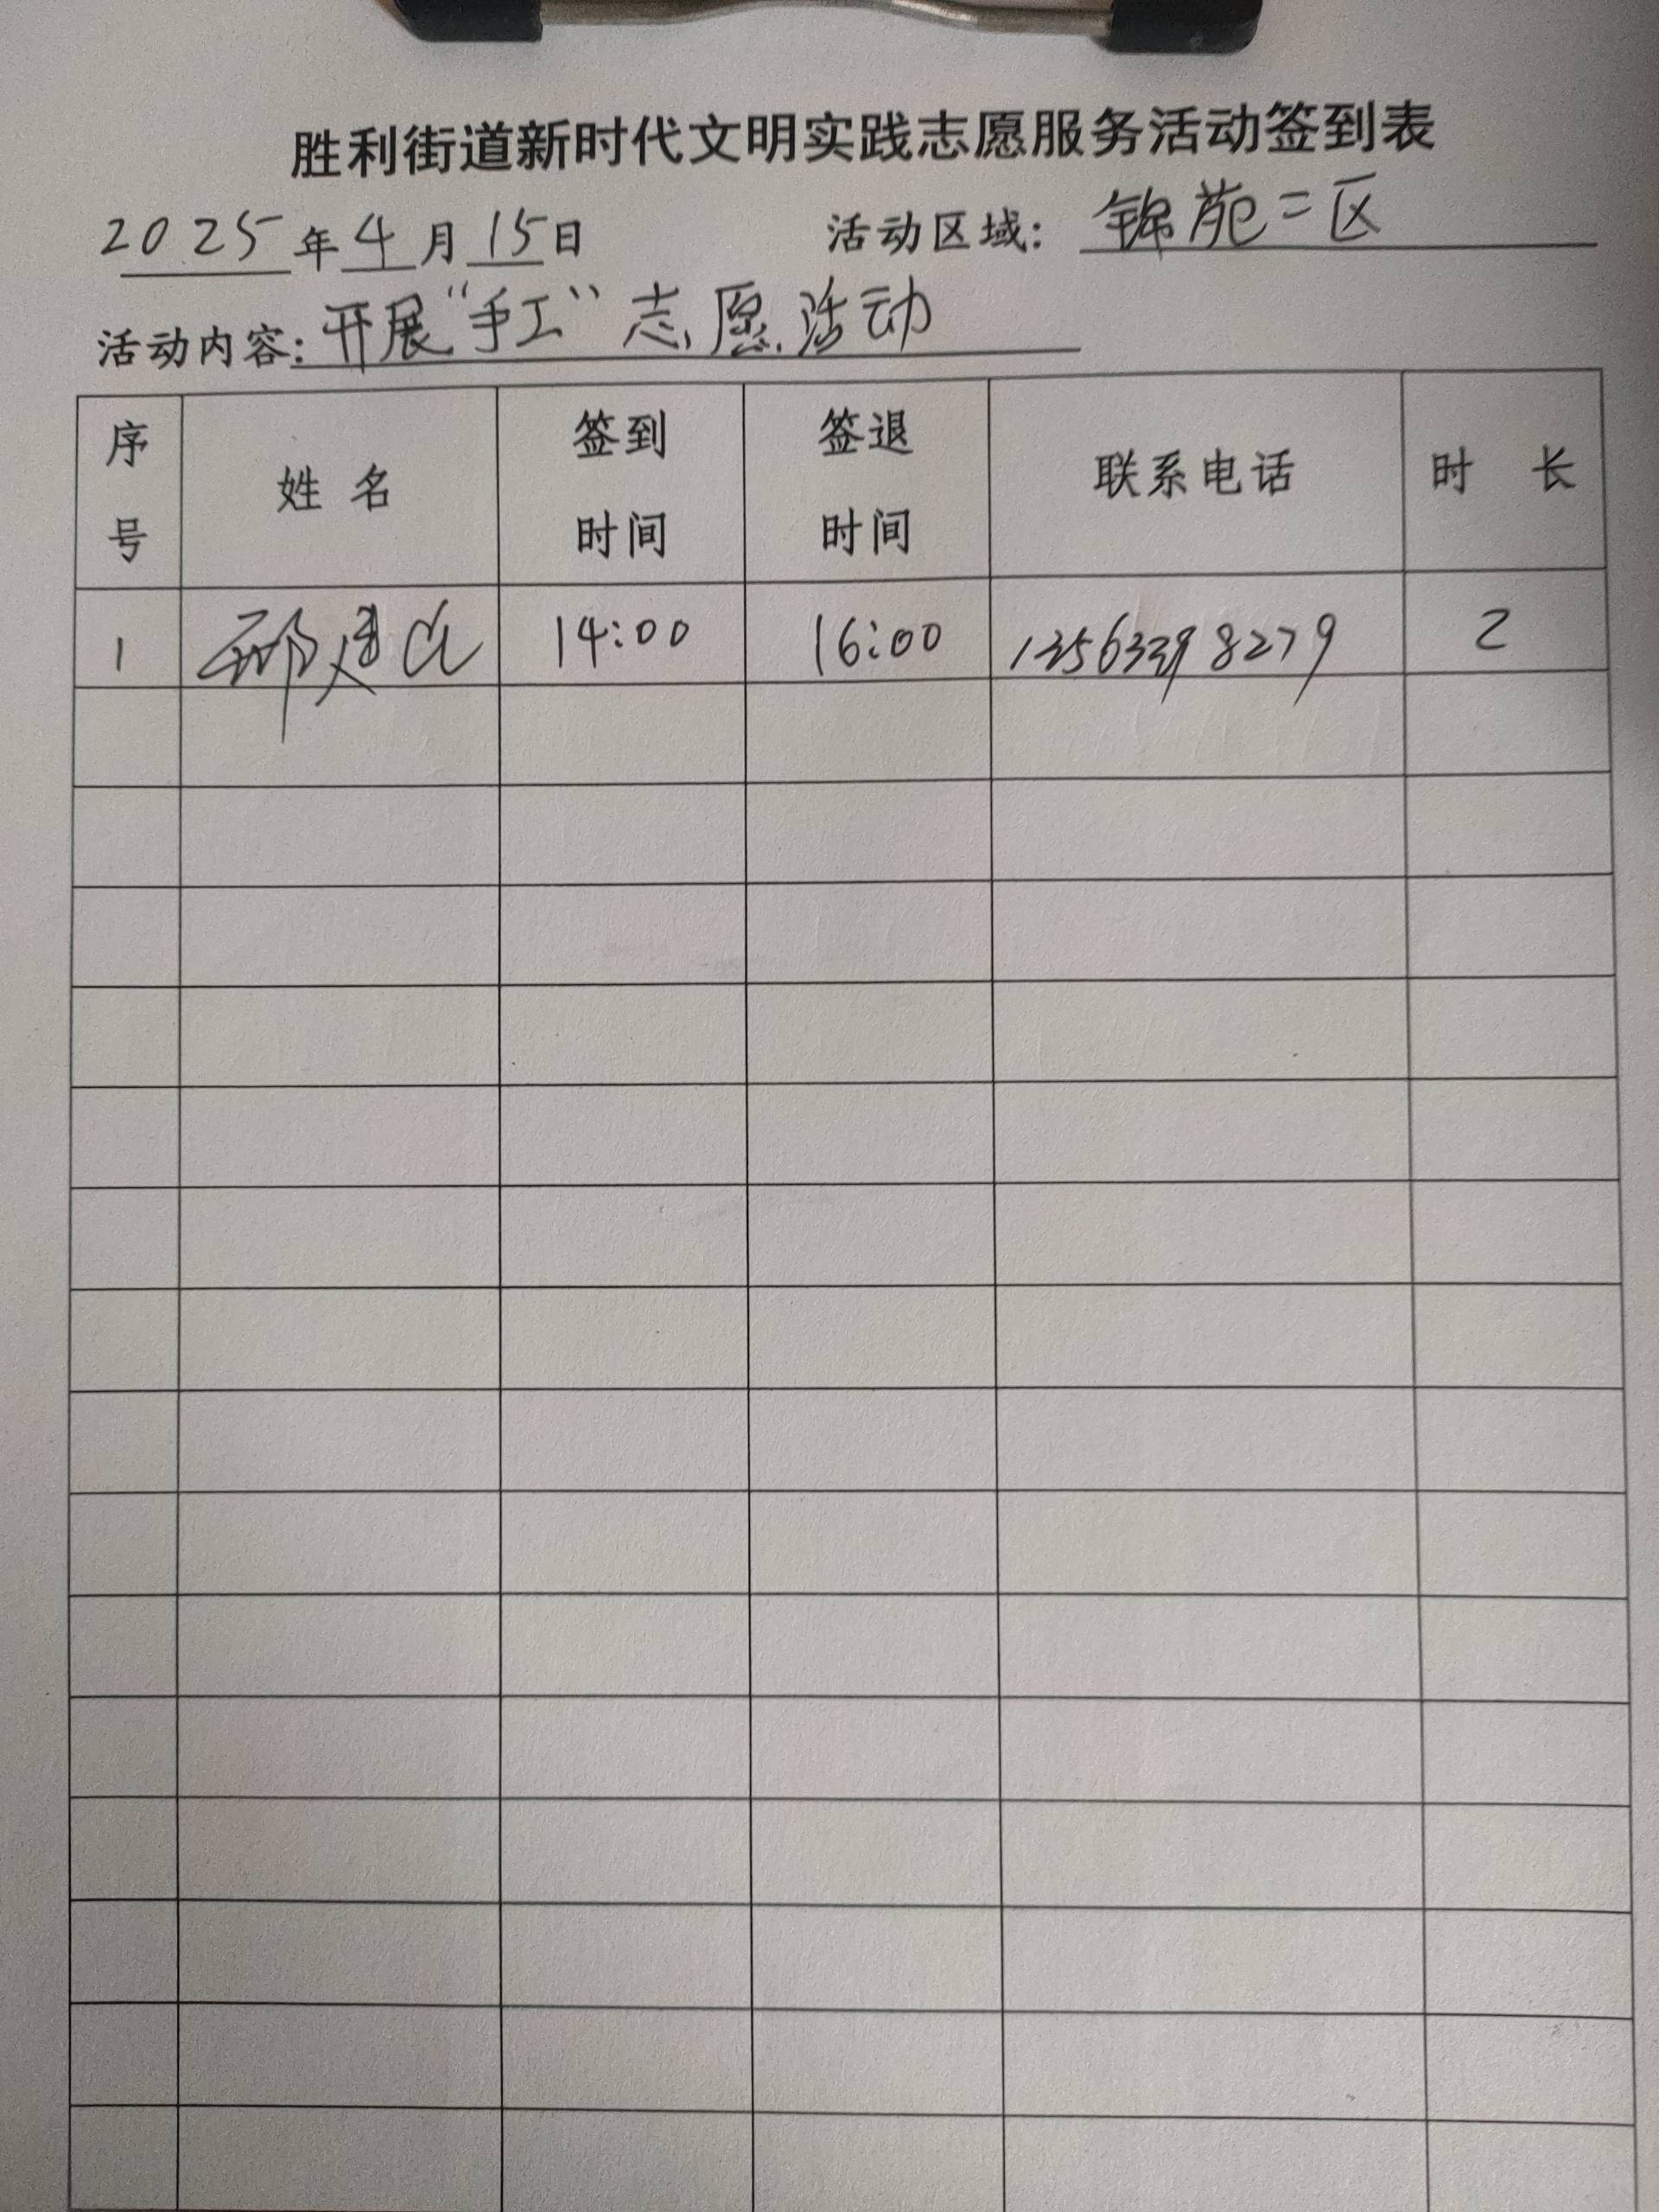 胜利街道新时代文明实践志愿服务活动签到表
2025年4月15日 活动区域：锦苑二区
活动内容：开展“手工”志愿活动
序号 姓名 签到时间 签退时间 联系电话 时 长
1 邢 14:00 16:00 2